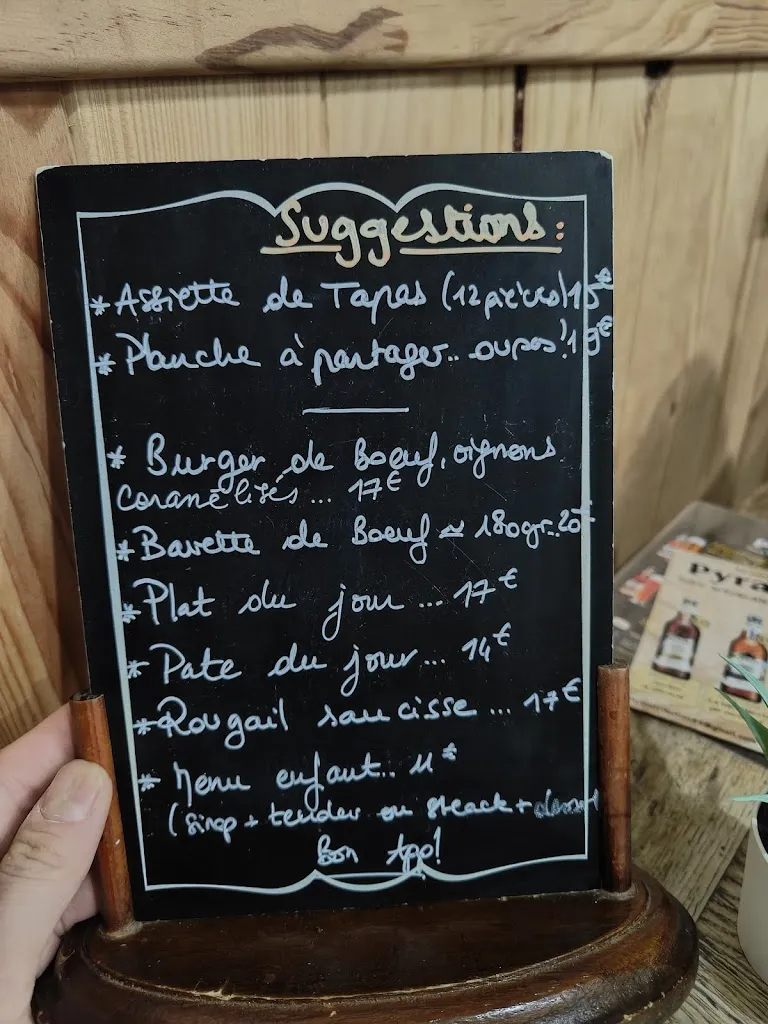 Suggestions:
* Assiette de Tapas (12 pièces) 15€
* Planche à partager.. ou pas! 19€
* Burger de Boeuf, oignons
caramélisés ... 17€
* Bavette de Boeuf ≃ 180gr.. 20€
* Plat du jour ... 17€
* Pate du jour... 14€
* Rougail saucisse ... 17€
* Menu enfant.. 11€
(Sirop + tender ou steack + dessert
Bon App!
Pyra